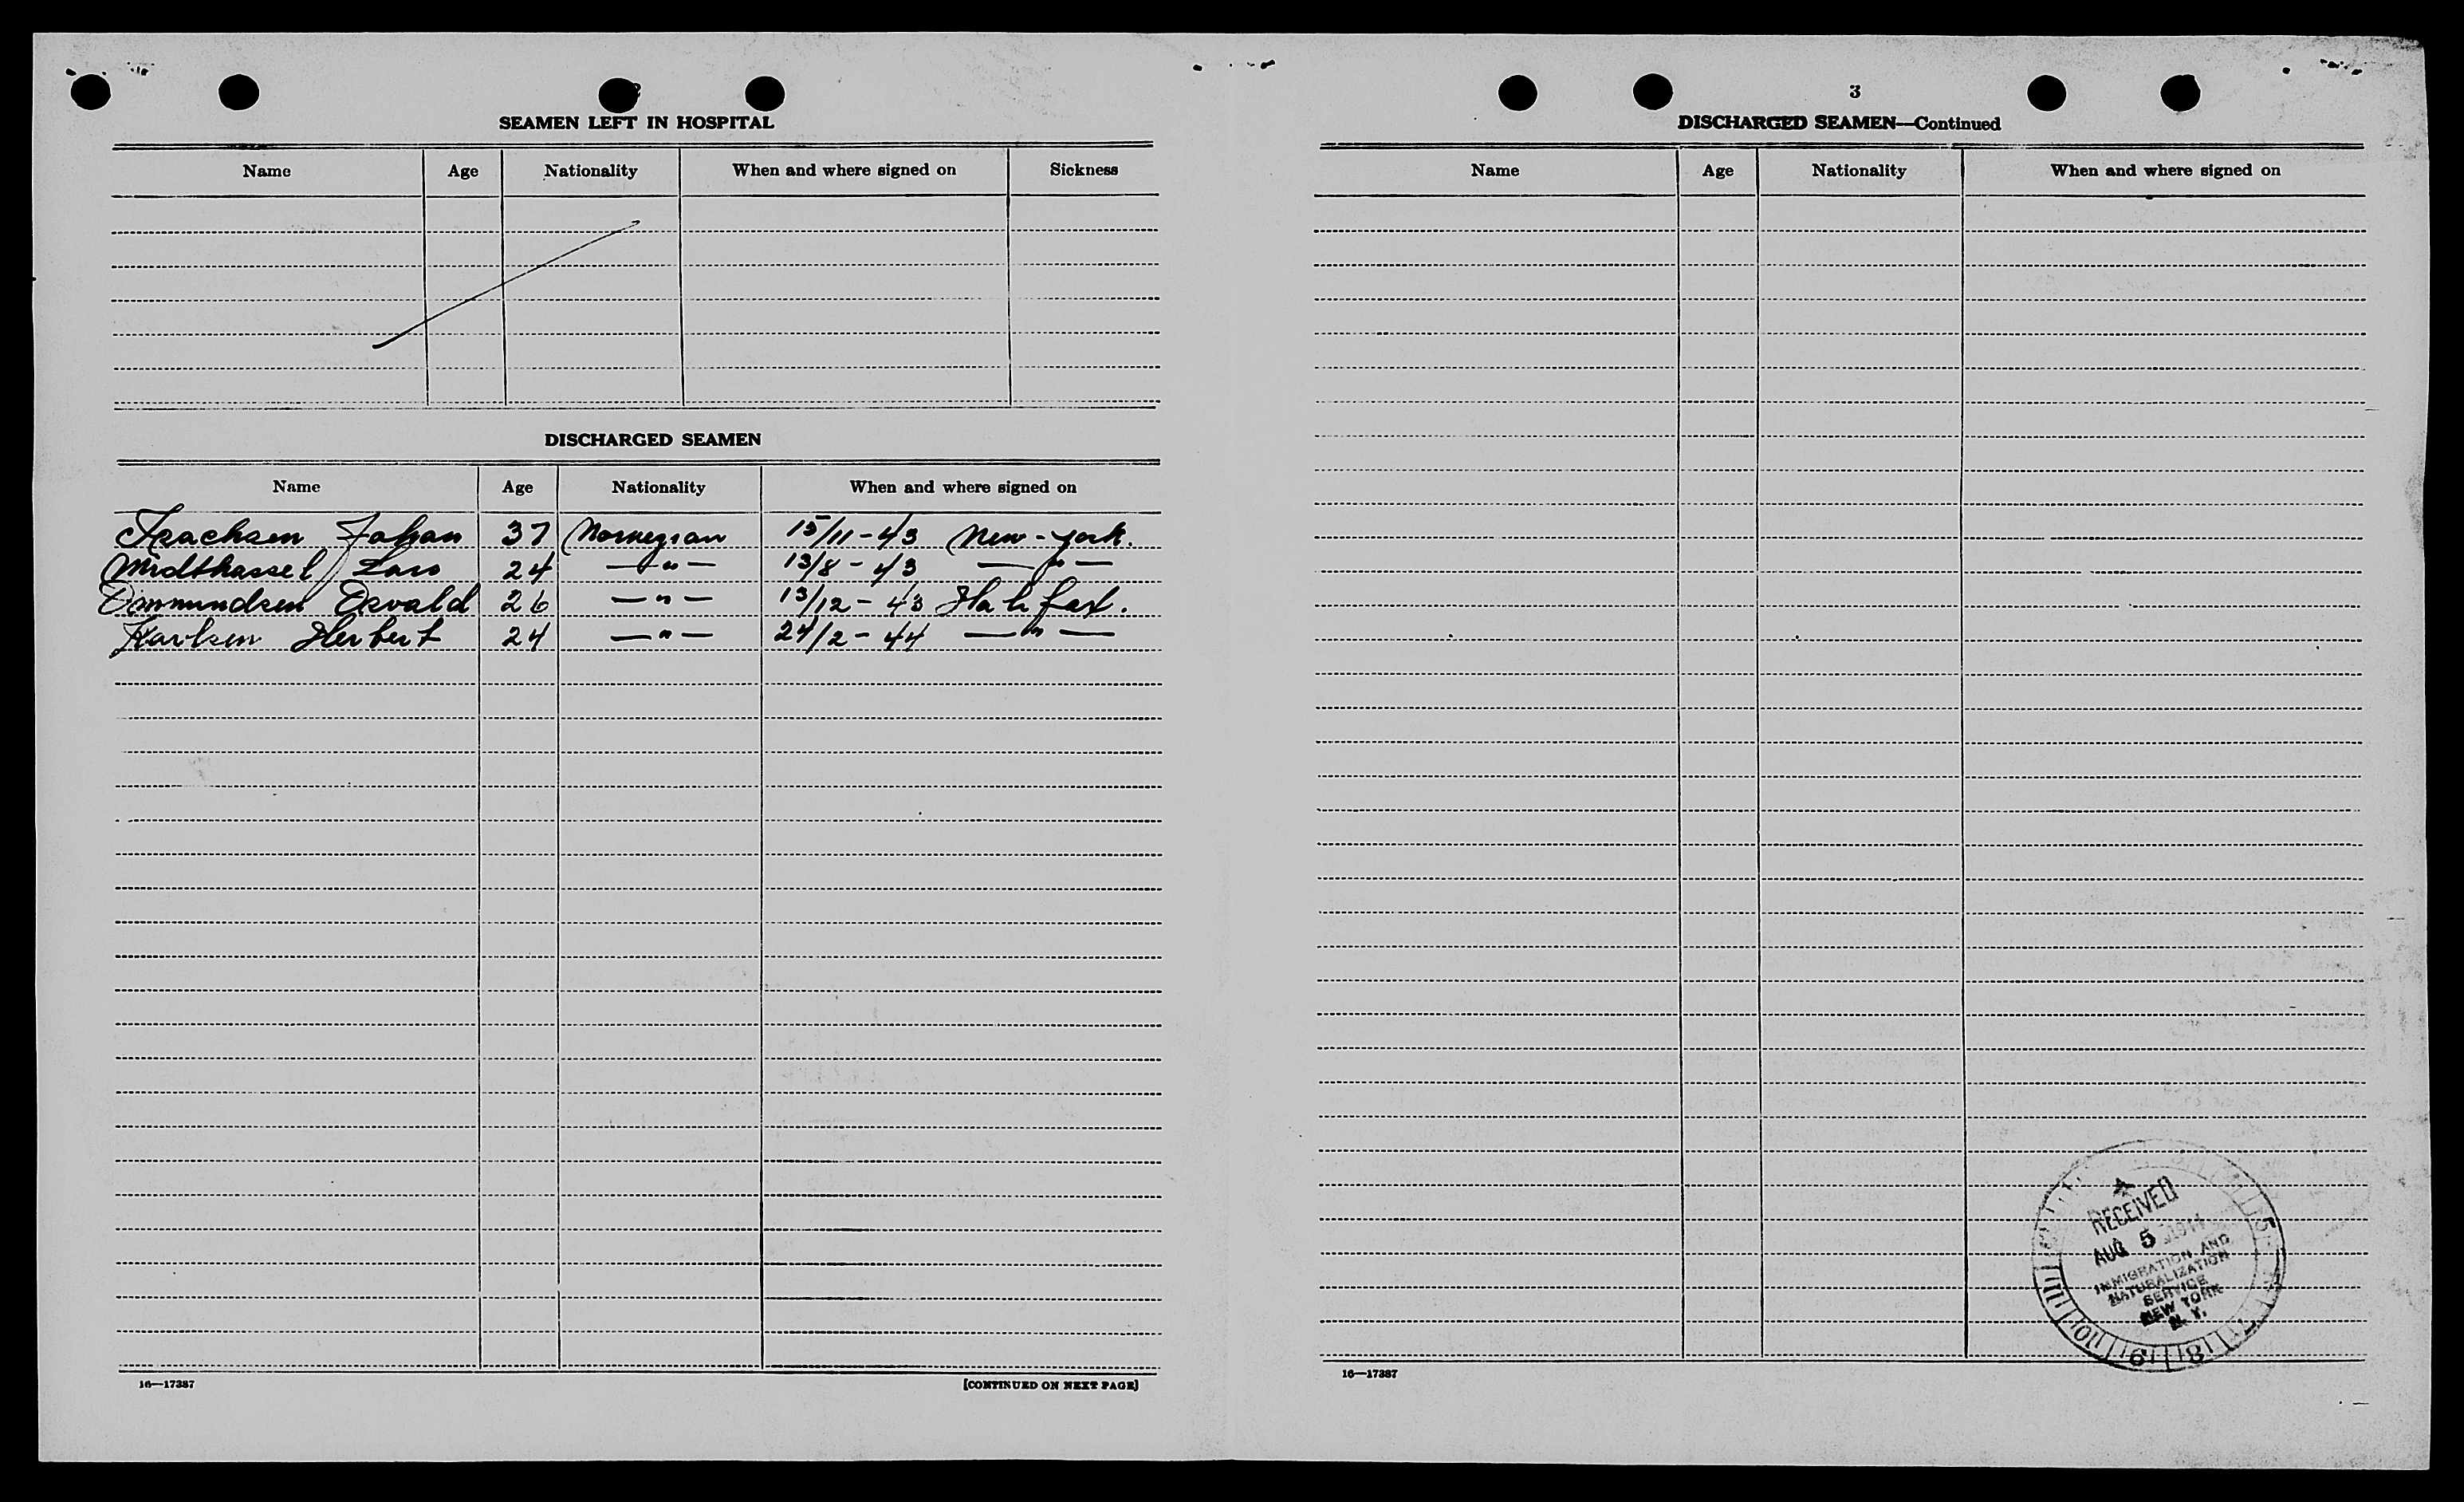 SEAMEN LEFT IN HOSPITAL
Name Age Nationality When and where signed on Sickness
DISCHARGED SEAMEN
Name Age Nationality When and where signed on
Isachsen Johan 37 Norwegian 15/11-43 New-york.
Midthassel Lars 24 —"— 13/8-43 —"—
Ommundsen Osvald 26 —"— 13/12-43 Halifax.
Karlsen Herbert 24 —"— 24/2-44 —"—
16—17387 [CONTINUED ON NEXT PAGE]
3
DISCHARGED SEAMEN—Continued
Name Age Nationality When and where signed on
RECEIVED
AUG 5 1944
IMMIGRATION AND
NATURALIZATION
SERVICE
NEW YORK
N. Y.
16—17387